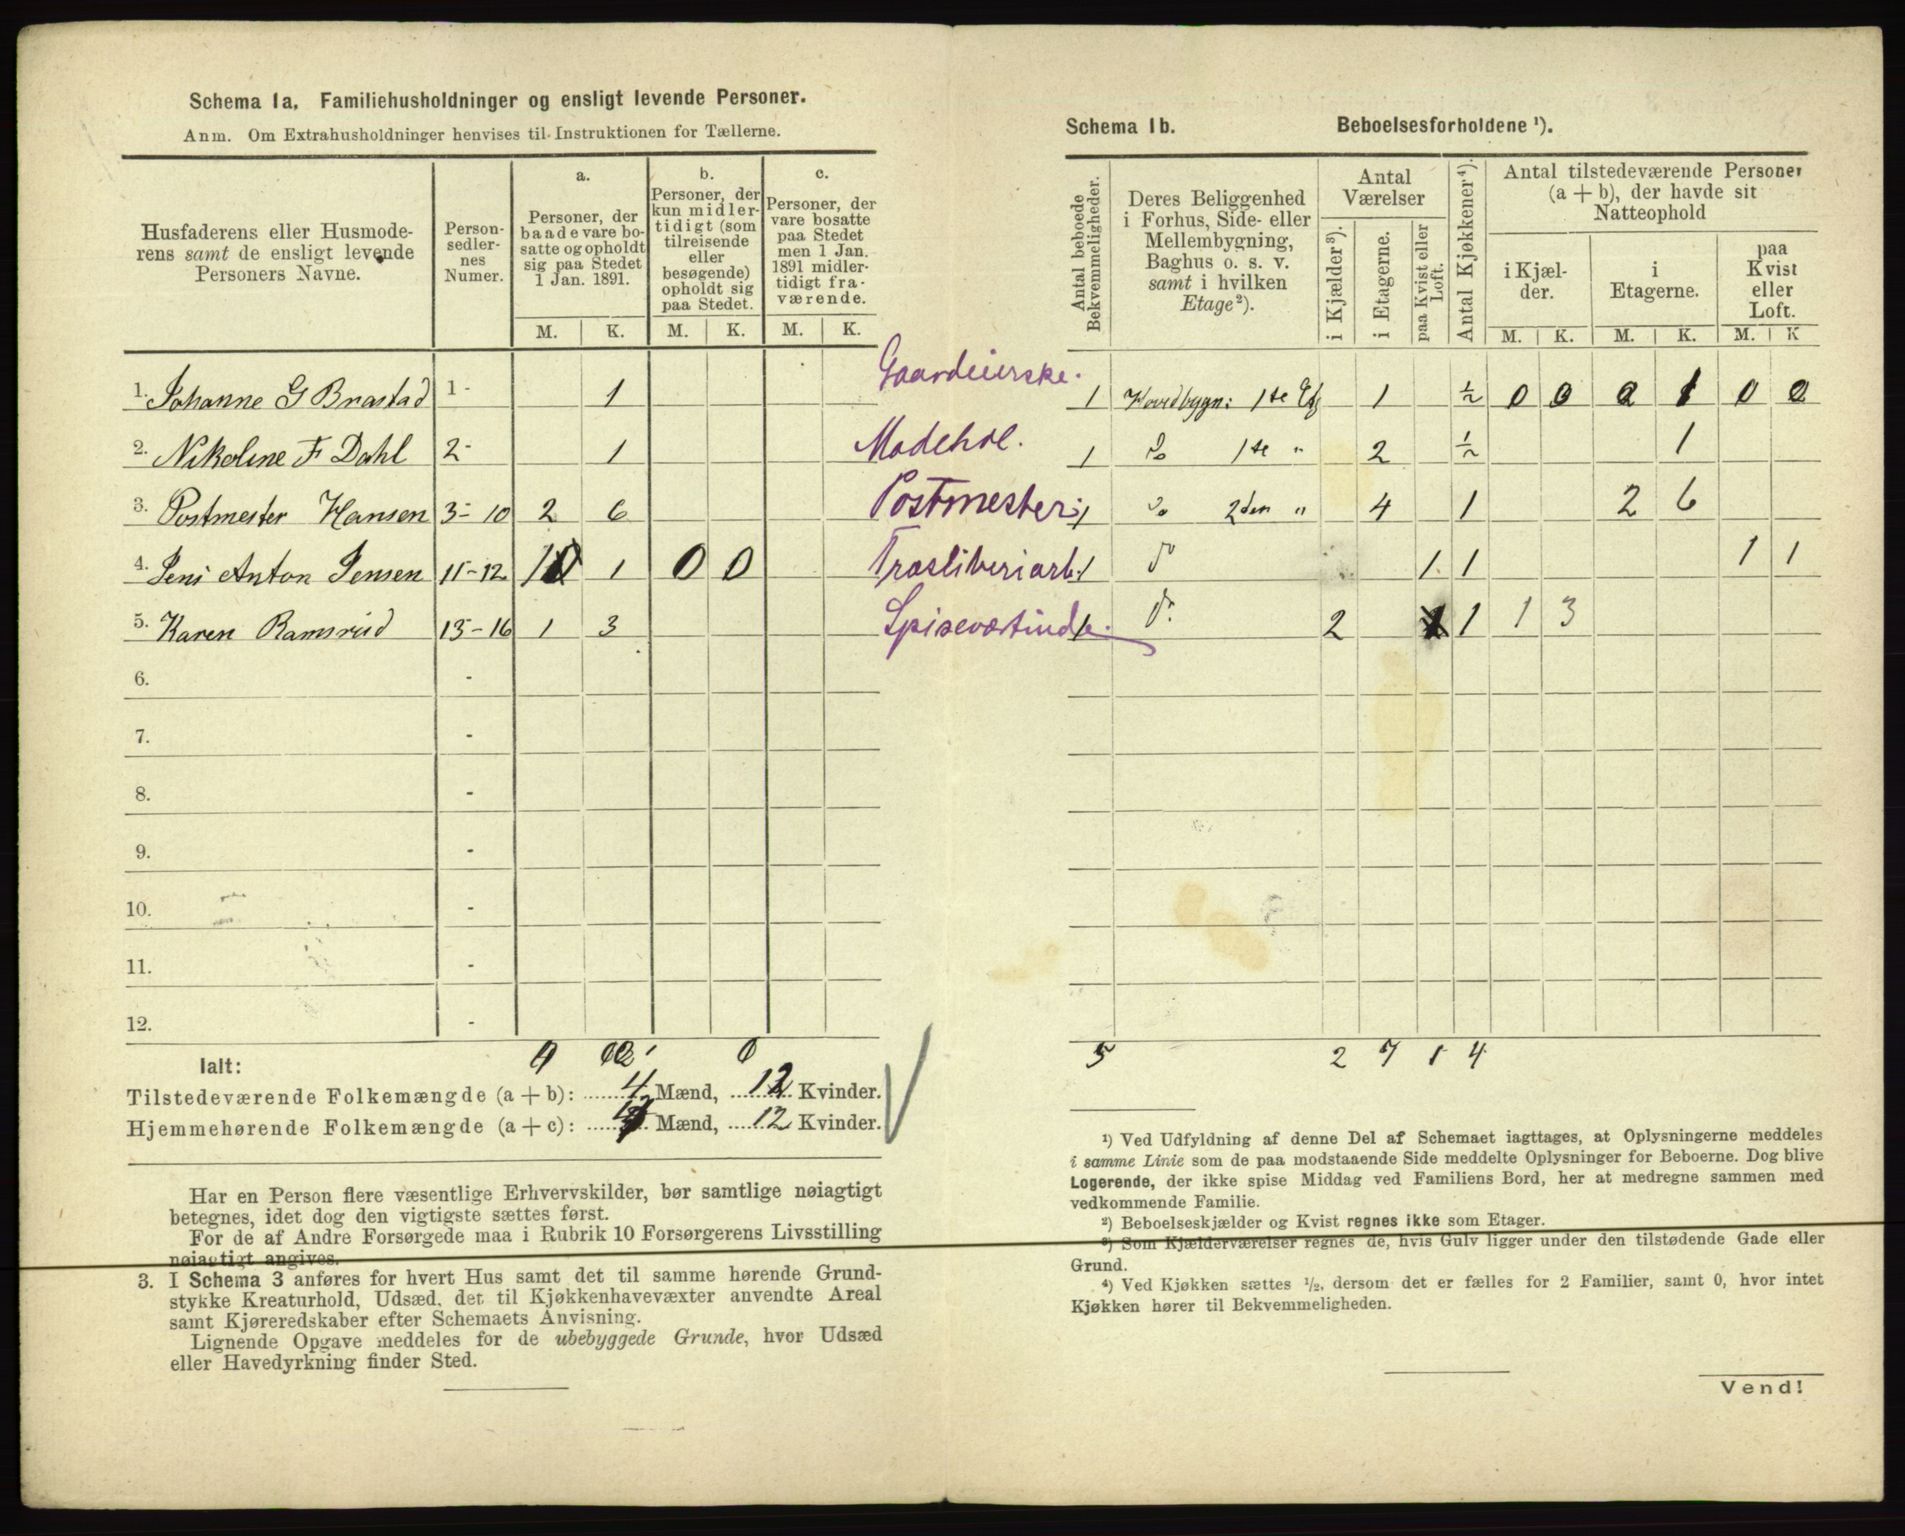 Schema 1a. Familiehusholdninger og ensligt levende Personer.
Anm. Om Extrahusholdninger henvises til Instruktionen for Tællerne.
Husfaderens eller Husmode-
rens samt de ensligt levende
Personers Navne.
Person-
sedler-
nes
Numer.
a.
Personer, der
baade vare bo-
satte og opholdt
sig paa Stedet
1 Jan. 1891.
b.
Personer, der
kun midler-
tidigt (som
tilreisende
eller
besøgende)
opholdt sig
paa Stedet.
c.
Personer, der
vare bosatte
paa Stedet
men 1 Jan.
1891 midler-
tidigt fra-
værende.
M. K. M. K. M. K.
1. Johanne G Brastad 1- 1 Gaardeierske.
2. Nikoline F Dahl 2- 1 Modehdl.
3. Postmester Hansen 3-10 2 6 Postmester:
4. Jens Anton Jensen 11-12 1 1 0 0
5. Karen Ramsrud 13-16 1 3 Spiseværtinde.
6. -
7. -
8. -
9. -
10. -
11. -
12. -
Ialt:
Tilstedeværende Folkemængde (a + b): 4 Mænd, 12 Kvinder.
Hjemmehørende Folkemængde (a + c): 4 Mænd, 12 Kvinder.
Har en Person flere væsentlige Erhvervskilder, bør samtlige nøiagtigt
betegnes, idet dog den vigtigste sættes først.
For de af Andre Forsørgede maa i Rubrik 10 Forsørgerens Livsstilling
nøiagtigt angives.
3. I Schema 3 anføres for hvert Hus samt det til samme hørende Grund-
stykke Kreaturhold, Udsæd, det til Kjøkkenhavevæxter anvendte Areal
samt Kjøreredskaber efter Schemaets Anvisning.
Lignende Opgave meddeles for de ubebyggede Grunde, hvor Udsæd
eller Havedyrkning finder Sted.
Schema 1b. Beboelsesforholdene ¹).
Antal beboede
Bekvemmeligheder.
Deres Beliggenhed
i Forhus, Side- eller
Mellembygning,
Baghus o. s. v.
samt i hvilken
Etage²).
Antal
Værelser
i Kjælder³).
i Etagerne.
paa Kvist eller
Loft.
Antal Kjøkkener⁴).
Antal tilstedeværende Personer
(a + b), der havde sit
Natteophold
i Kjæl-
der.
i
Etagerne.
paa
Kvist
eller
Loft.
M. K. M. K. M. K
1 Hovedbygn: 1ste Etg 1 ½ 0 0 0 1 0 0
1 Do 1ste " 2 ½ 1
1 Do 2den " 4 1 2 6
1 do 1 1 1 1
1 do. 2 1 1 3
5 2 7 1 4
¹) Ved Udfyldning af denne Del af Schemaet iagttages, at Oplysningerne meddeles
i samme Linie som de paa modstaaende Side meddelte Oplysninger for Beboerne. Dog blive
Logerende, der ikke spise Middag ved Familiens Bord, her at medregne sammen med
vedkommende Familie.
²) Beboelseskjælder og Kvist regnes ikke som Etager.
³) Som Kjælderværelser regnes de, hvis Gulv ligger under den tilstødende Gade eller
Grund.
⁴) Ved Kjøkken sættes ½, dersom det er fælles for 2 Familier, samt 0, hvor intet
Kjøkken hører til Bekvemmeligheden.
Vend!